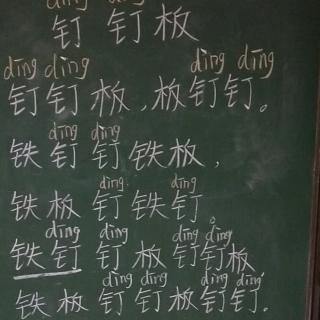 钉 钉板
dīng dìng dìng dīng
钉钉板,板钉钉。
dīng dìng
铁钉钉铁板,
dìng dīng
铁板钉铁钉。
dīng dìng dīng dìng
铁钉钉板钉钉板
dìng dīng dìng dīng
铁板钉钉板钉钉.